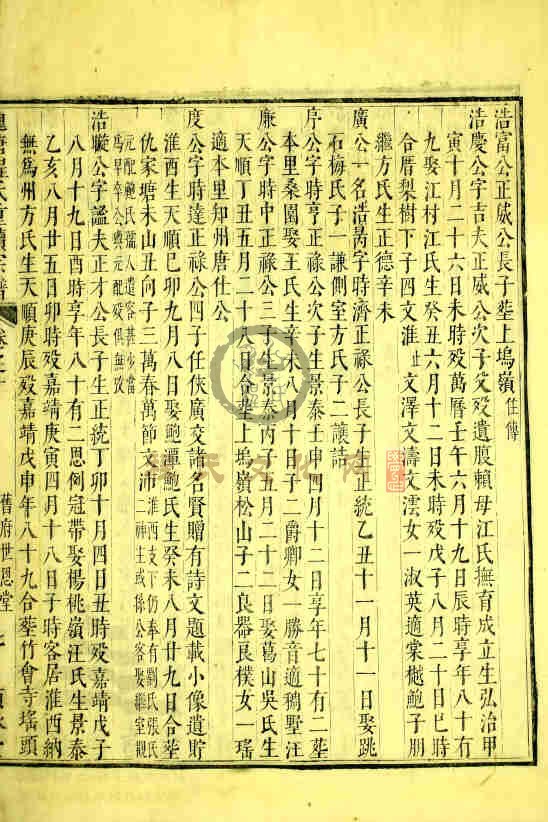 浩富公正威公長子塟上塢嶺仕傳
浩慶公字吉夫正威公次子父歿遺腹賴母江氏撫育成立生弘治甲
寅十月二十六日未時歿萬曆壬午六月十九日辰時享年八十有
九娶江村江氏生癸丑六月十二日未時歿戊子八月二十日巳時
合厝梨樹下子四文淮 文澤文濤文澐女一淑英適棠樾鮑子朋
繼方氏生正德辛未
廣公一名浩 字時濟正祿公長子生正統乙丑十一月十一日娶跳
石梅氏子一謙側室方氏子二讓詩
序公字時亨正祿公次子生景泰壬申四月十二日享年七十有二塟
本里桑園娶王氏生辛未八月十日子二爵卿女一勝音適稠墅汪
廉公字時中正祿公三子生景泰丙子二月二十二日娶葛山吳氏生
天順丁丑五月二十八日合塟上塢嶺松山子二良器良樸女一瑤
適本里知州唐仕公
度公字時達正祿公四子任俠廣交諸名賢贈有詩文題載小像遺貯
淮酉生天順己卯九月八日娶鮑潭鮑氏生癸未八月廿九日合塟
仇家塘未山丑向子三萬春萬節文沛淮酉支下仍奉有劉氏張氏
二神主或係公客娶繼室觀
元配鮑氏篇人遺容甚少當
為早卒公與元配歿俱無攷
浩 公字謐夫正才公長子生正統丁卯十月四日丑時歿嘉靖戊子
八月十九日酉時享年八十有二恩例冠帶娶楊桃嶺汪氏生景泰
乙亥八月廿五日卯時歿嘉靖庚寅四月十八日子時客居淮西納
無為州方氏生天順庚辰歿嘉靖戊申年八十九合塟竹會寺瑤頭
程氏 宗譜
卷之十
舊府世恩堂